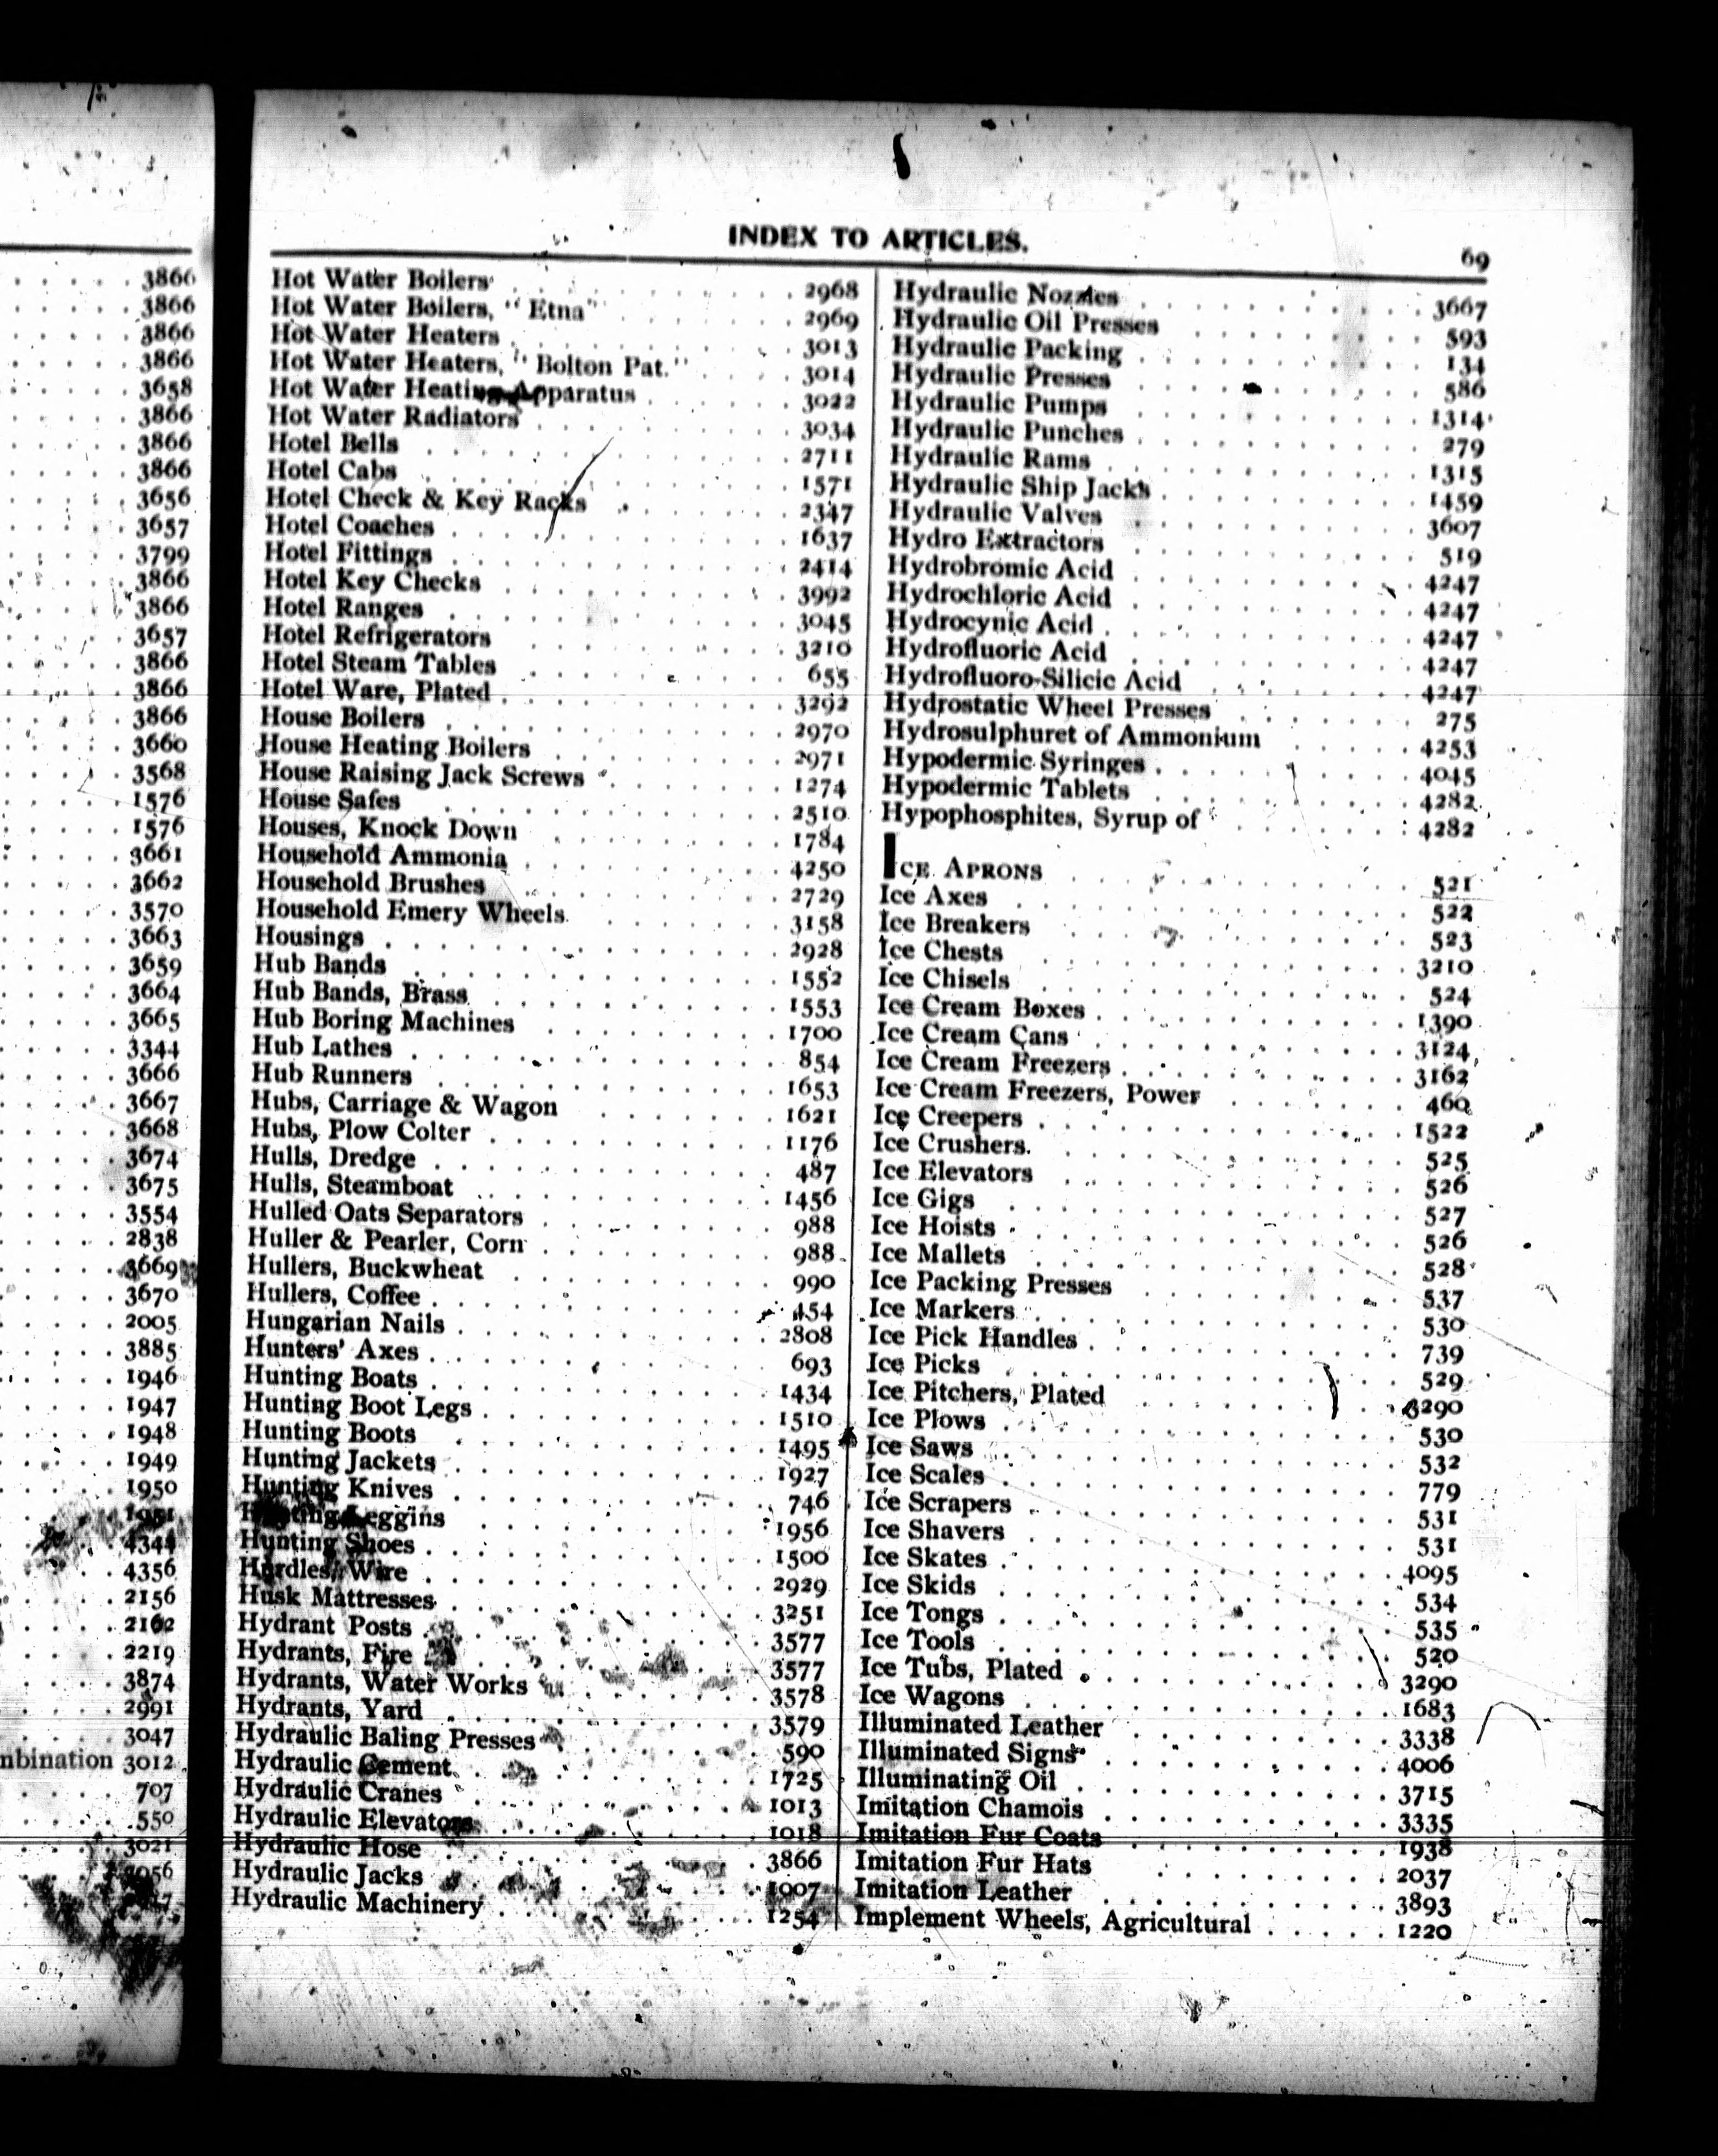 3866
3866
3866
3866
3658
3866
3866
3866
3656
3657
3799
3866
3866
3657
3866
3866
3866
3660
3568
1576
1576
3661
3662
3570
3663
3659
3664
3665
3344
3666
3667
3668
3674
3675
3554
2838
3669
3670
2005
3885
1946
1947
1948
1949
1950
1951
4344
4356
2156
2162
2219
3874
2991
3047
mbination 3012
707
550
3021
INDEX TO ARTICLES. 69
Hot Water Boilers 2968
Hot Water Boilers, "Etna" 2969
Hot Water Heaters 3013
Hot Water Heaters, "Bolton Pat." 3014
Hot Water Heating Apparatus 3022
Hot Water Radiators 3034
Hotel Bells 2711
Hotel Cabs 1571
Hotel Check & Key Racks 2347
Hotel Coaches 1637
Hotel Fittings 2414
Hotel Key Checks 3992
Hotel Ranges 3045
Hotel Refrigerators 3210
Hotel Steam Tables 655
Hotel Ware, Plated 3292
House Boilers 2970
House Heating Boilers 2971
House Raising Jack Screws 1274
House Safes 2510
Houses, Knock Down 1784
Household Ammonia 4250
Household Brushes 2729
Household Emery Wheels 3158
Housings 2928
Hub Bands 1552
Hub Bands, Brass 1553
Hub Boring Machines 1700
Hub Lathes 854
Hub Runners 1653
Hubs, Carriage & Wagon 1621
Hubs, Plow Colter 1176
Hulls, Dredge 487
Hulls, Steamboat 1456
Hulled Oats Separators 988
Huller & Pearler, Corn 988
Hullers, Buckwheat 990
Hullers, Coffee 454
Hungarian Nails 2808
Hunters' Axes 693
Hunting Boats 1434
Hunting Boot Legs 1510
Hunting Boots 1495
Hunting Jackets 1927
Hunting Knives 746
Hunting Leggins 1956
Hunting Shoes 1500
Hurdles, Wire 2929
Husk Mattresses 3251
Hydrant Posts 3577
Hydrants, Fire 3577
Hydrants, Water Works 3578
Hydrants, Yard 3579
Hydraulic Baling Presses 590
Hydraulic Cement 1725
Hydraulic Cranes 1013
Hydraulic Elevators 1018
Hydraulic Hose 3866
Hydraulic Jacks 1007
Hydraulic Machinery 1254
Hydraulic Nozzles 3667
Hydraulic Oil Presses 593
Hydraulic Packing 134
Hydraulic Presses 586
Hydraulic Pumps 1314
Hydraulic Punches 279
Hydraulic Rams 1315
Hydraulic Ship Jacks 1459
Hydraulic Valves 3607
Hydro Extractors 519
Hydrobromic Acid 4247
Hydrochloric Acid 4247
Hydrocynic Acid 4247
Hydrofluoric Acid 4247
Hydrofluoro-Silicic Acid 4247
Hydrostatic Wheel Presses 275
Hydrosulphuret of Ammonium 4253
Hypodermic Syringes 4045
Hypodermic Tablets 4282
Hypophosphites, Syrup of 4282
ICE APRONS 521
Ice Axes 522
Ice Breakers 523
Ice Chests 3210
Ice Chisels 524
Ice Cream Boxes 1390
Ice Cream Cans 3124
Ice Cream Freezers 3162
Ice Cream Freezers, Power 460
Ice Creepers 1522
Ice Crushers 525
Ice Elevators 526
Ice Gigs 527
Ice Hoists 526
Ice Mallets 528
Ice Packing Presses 537
Ice Markers 530
Ice Pick Handles 739
Ice Picks 529
Ice Pitchers, Plated 3290
Ice Plows 530
Ice Saws 532
Ice Scales 779
Ice Scrapers 531
Ice Shavers 531
Ice Skates 4095
Ice Skids 534
Ice Tongs 535
Ice Tools 520
Ice Tubs, Plated 3290
Ice Wagons 1683
Illuminated Leather 3338
Illuminated Signs 4006
Illuminating Oil 3715
Imitation Chamois 3335
Imitation Fur Coats 1938
Imitation Fur Hats 2037
Imitation Leather 3893
Implement Wheels, Agricultural 1220